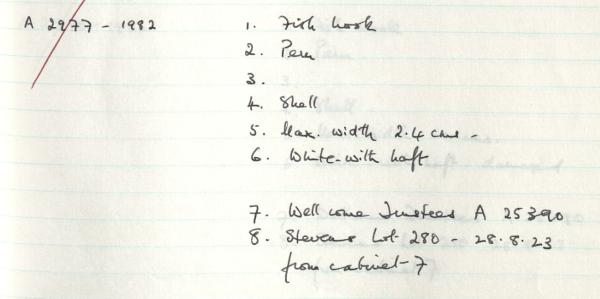 A 2977 - 1982
1. Fish hook
2. Peru
3.
4. Shell
5. Max. width 2.4 cms -
6. White - with haft
7. Wellcome Trustees A 25390
8. Stevens Lot 280 - 28.8.23
from cabinet - 7